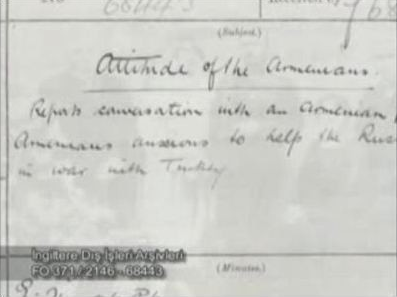 No 68443
(Subject.)
Attitude of the Armenians.
Reports conversation with an Armenian
Armenians anxious to help the Rus
in war with Turkey
İngiltere Dış İşleri Arşivleri
FO 371 / 2146 - 68443
(Minutes.)